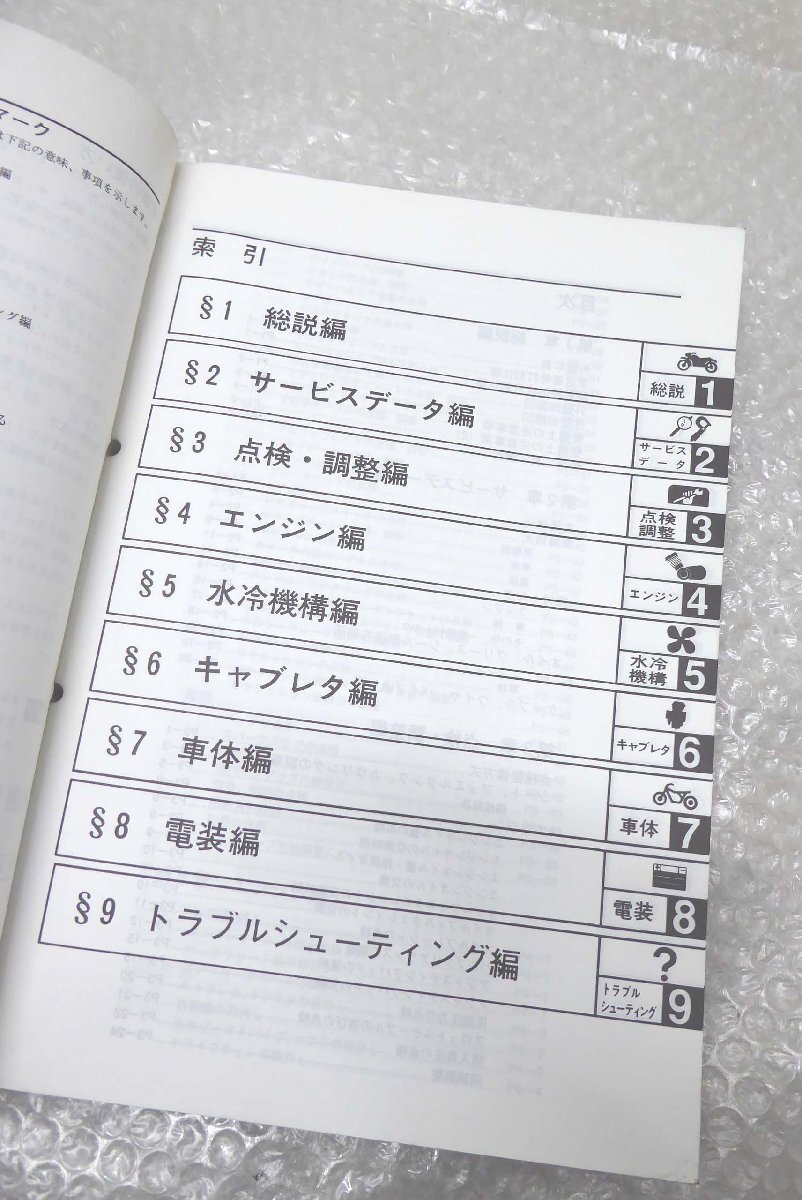 マーク
は下記の意味、事項を示します。
編
ング編
る
索 引
§1 総説編
総説 1
§2 サービスデータ編
サービス
データ 2
§3 点検・調整編
点検
調整 3
§4 エンジン編
エンジン 4
§5 水冷機構編
水冷
機構 5
§6 キャブレタ編
キャブレタ 6
§7 車体編
車体 7
§8 電装編
電装 8
§9 トラブルシューティング編
?
トラブル
シューティング 9